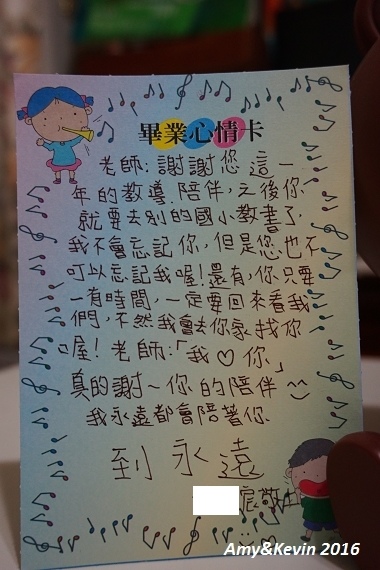 畢業心情卡
老師:謝謝您這一
年的教導.陪伴,之後你
就要去別的國小教書了,
我不會忘記你,但是您也不
可以忘記我喔!還有,你只要
一有時間,一定要回來看我
們,不然我會去你家找你
喔!老師:「我♡你」
真的謝~你的陪伴^^
我永遠都會陪著你
到永遠
宸敬上
Amy&Kevin 2016